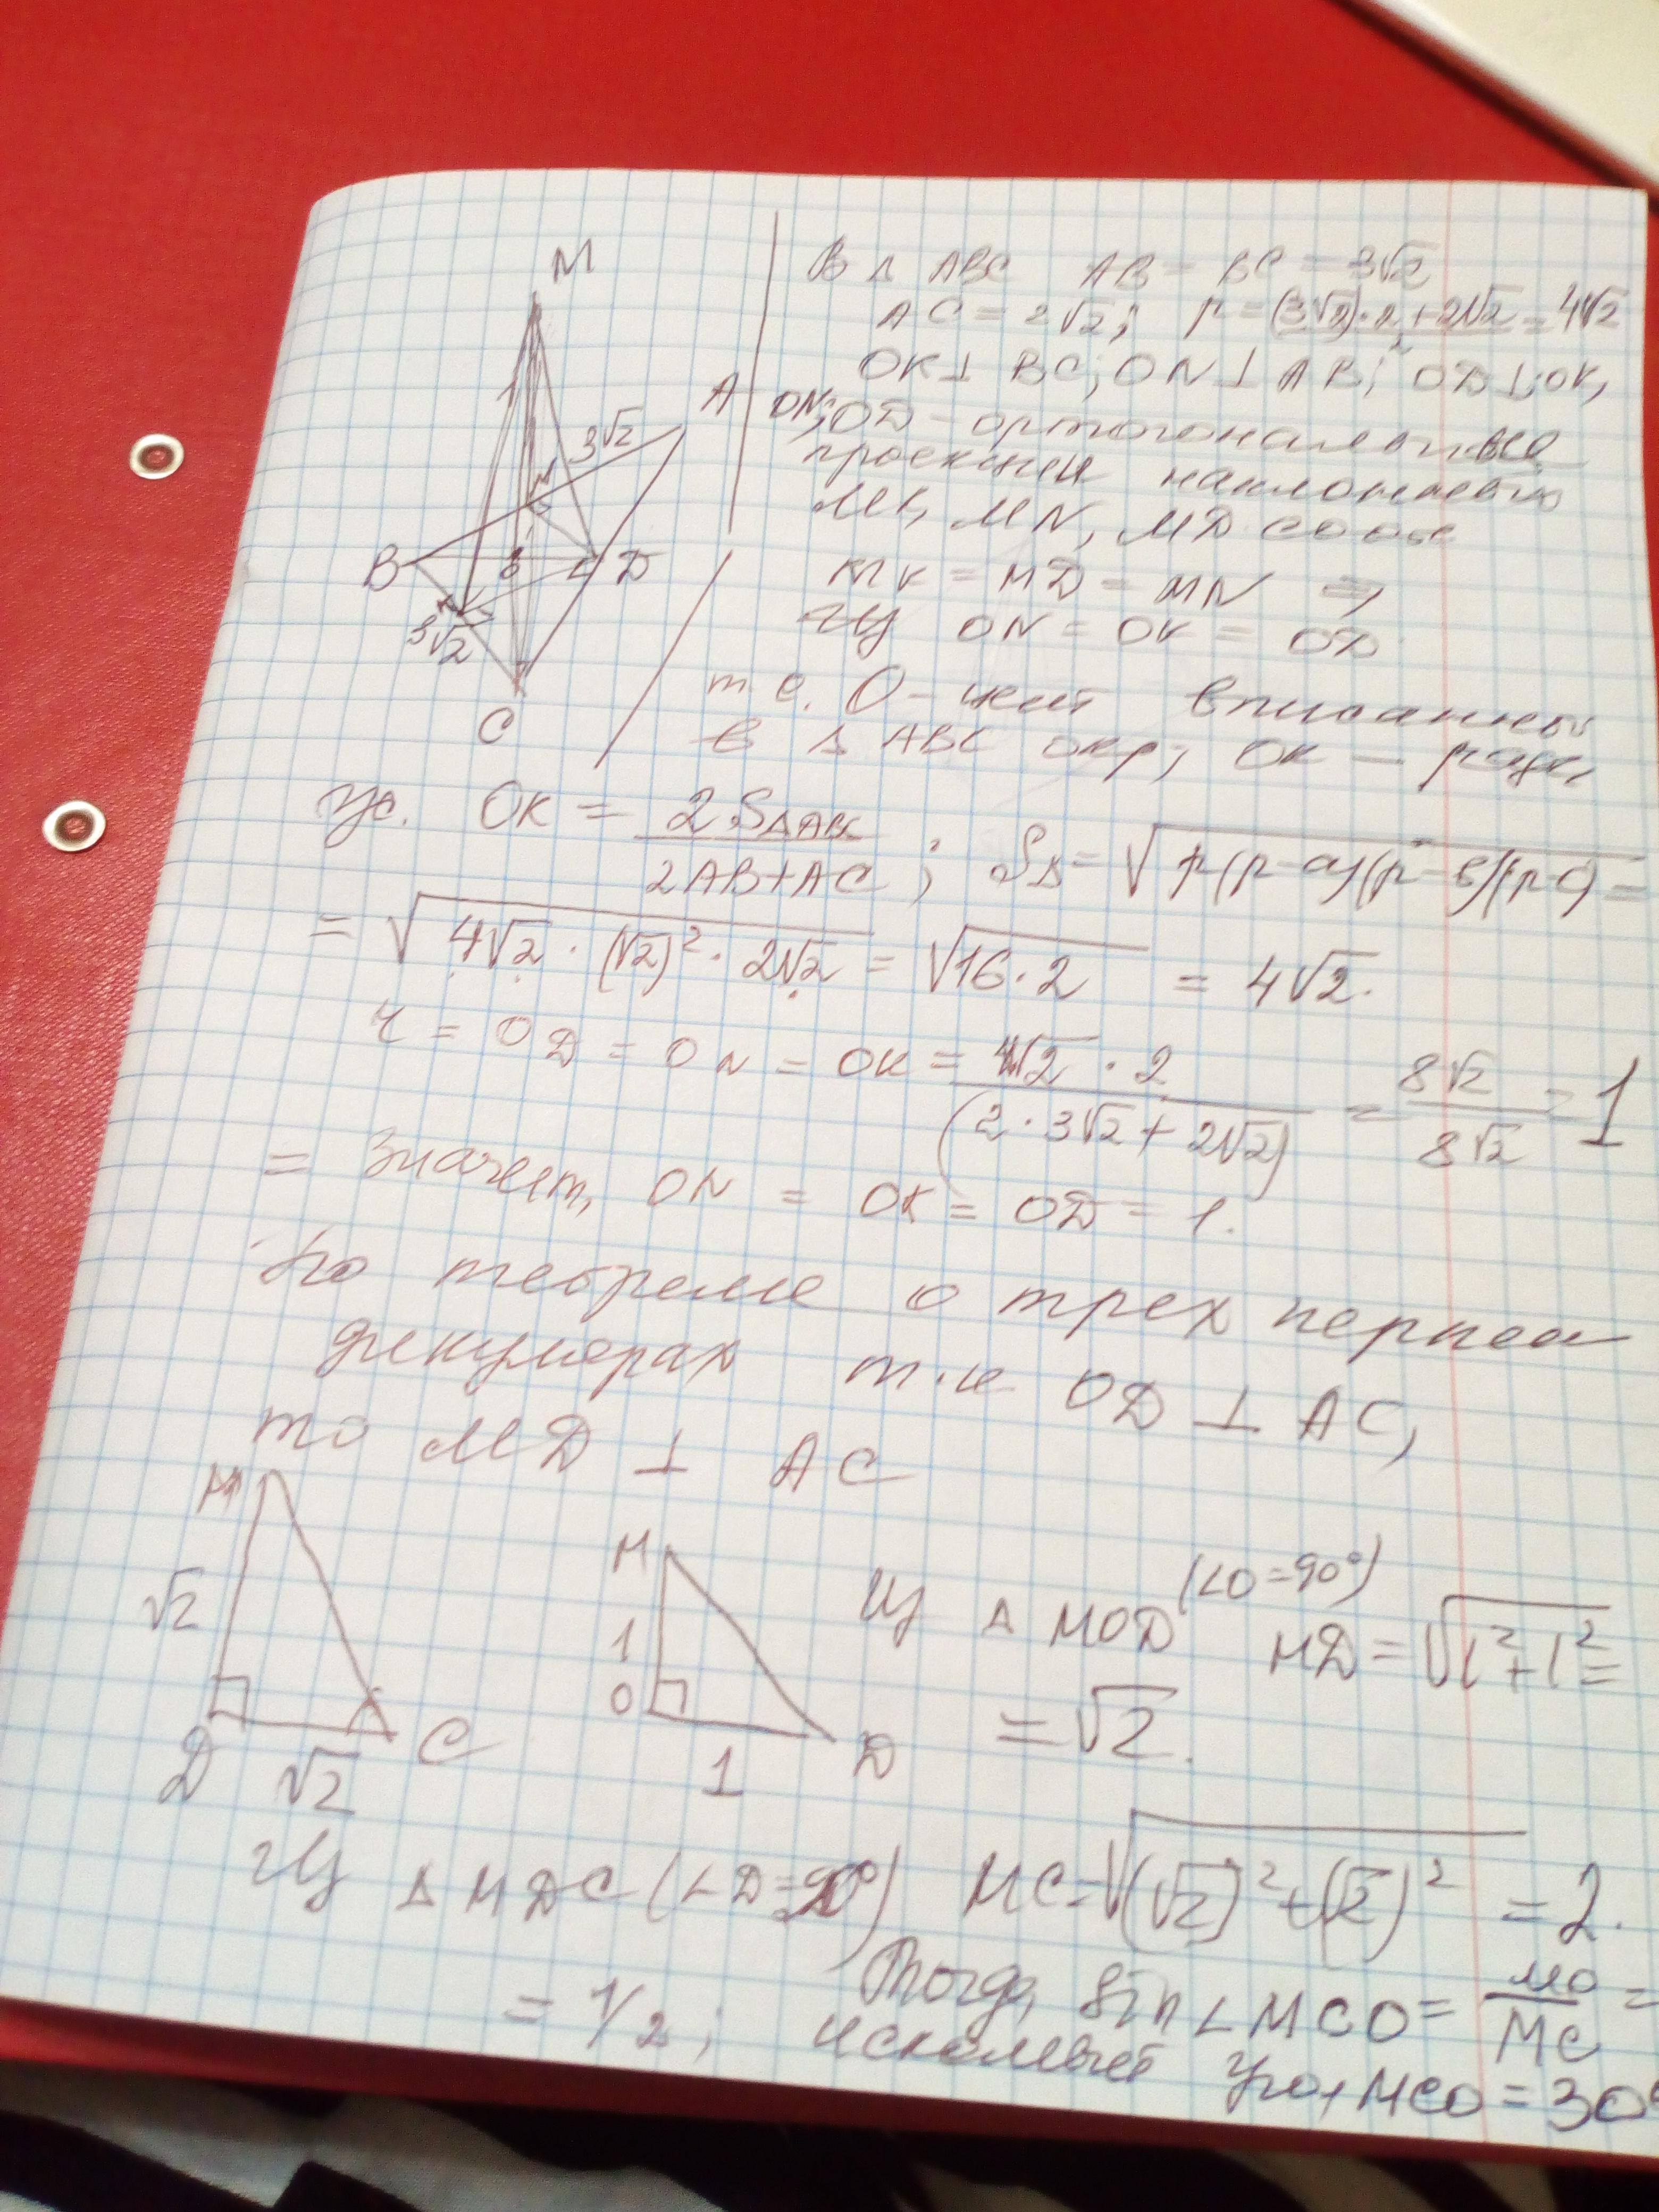 M
A
3√2
1
B
D
3√2
C
В Δ ABC AB = BC = 3√2
AC = 2√2; p = (3√2)·2+2√2 / 2 = 4√2
OK⊥ BC; ON⊥ AB; OD⊥
ON; OD – ортогональные
проекции наклонных
MK, MN, MD соотв
MK = MD = MN ⇒
ON = OK = OD
т.е. O – цент вписанной
в Δ ABC окр; OK – рад.
OK = 2S_ΔABC / 2AB+AC ; S_Δ = √p(p-a)(p-b)(p-c) =
= √4√2 · (√2)² · 2√2 = √16·2 = 4√2.
r = OD = ON = OK = 4√2 · 2 / (2·3√2 + 2√2) = 8√2 / 8√2 = 1
= Значит, ON = OK = OD = 1.
По теореме о трех перпен
дикулярах т.к OD ⊥ AC,
то MD ⊥ AC
M
√2
D √2 C
M
1
O
1 D
Из Δ MOD (∠O=90°) MD = √1²+1² =
= √2.
Из Δ MDC (∠D=90°) MC = √(√2)²+(√2)² = 2.
Тогда, Sin ∠MCO = MO / MC =
= 1/2; искомый угол MCO = 30°